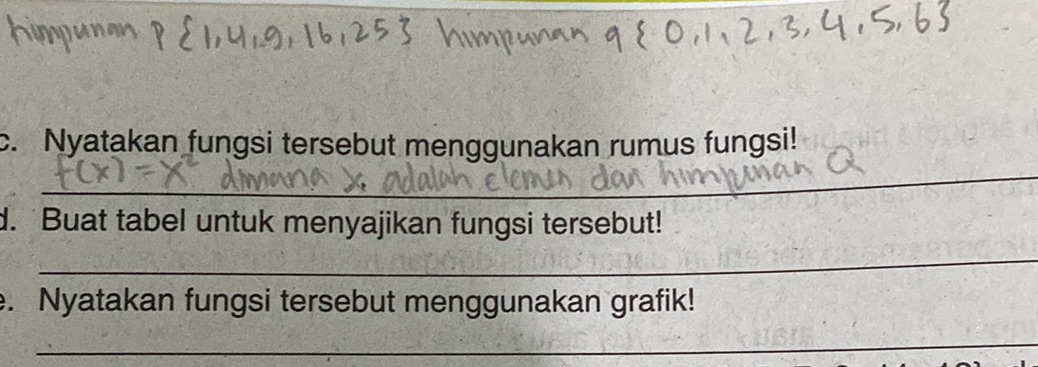 himpunan P {1,4,9,16,25} himpunan q {0,1,2,3,4,5,6}
c. Nyatakan fungsi tersebut menggunakan rumus fungsi!
f(x) = x² dimana x adalah elemen dari himpunan Q
d. Buat tabel untuk menyajikan fungsi tersebut!
e. Nyatakan fungsi tersebut menggunakan grafik!